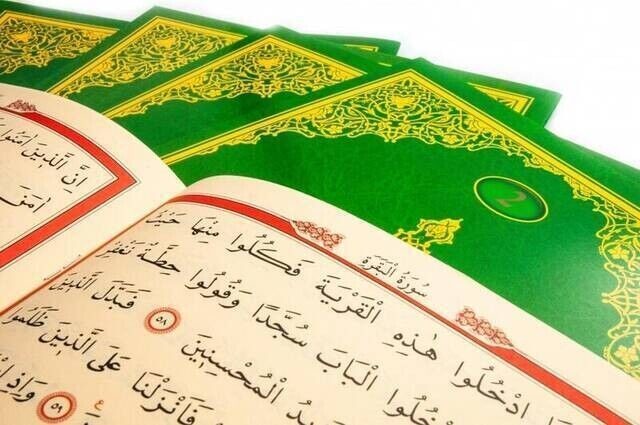 2
سُورَةُ الْبَقَرَةِ
اِنَّ الَّذ۪ينَ اٰمَنُوا
اٰمَنَ
ادْخُلُوا هٰذِهِ الْقَرْيَةَ فَكُلُوا مِنْهَا حَيْثُ
الْبَابَ سُجَّدًا وَقُولُوا حِطَّةٌ نَغْفِرْ
الْمُحْسِن۪ينَ ٥٨ فَبَدَّلَ الَّذ۪ينَ
فَاَنْزَلْنَا عَلَى الَّذ۪ينَ ظَلَمُوا
٥٩ وَاِذِ